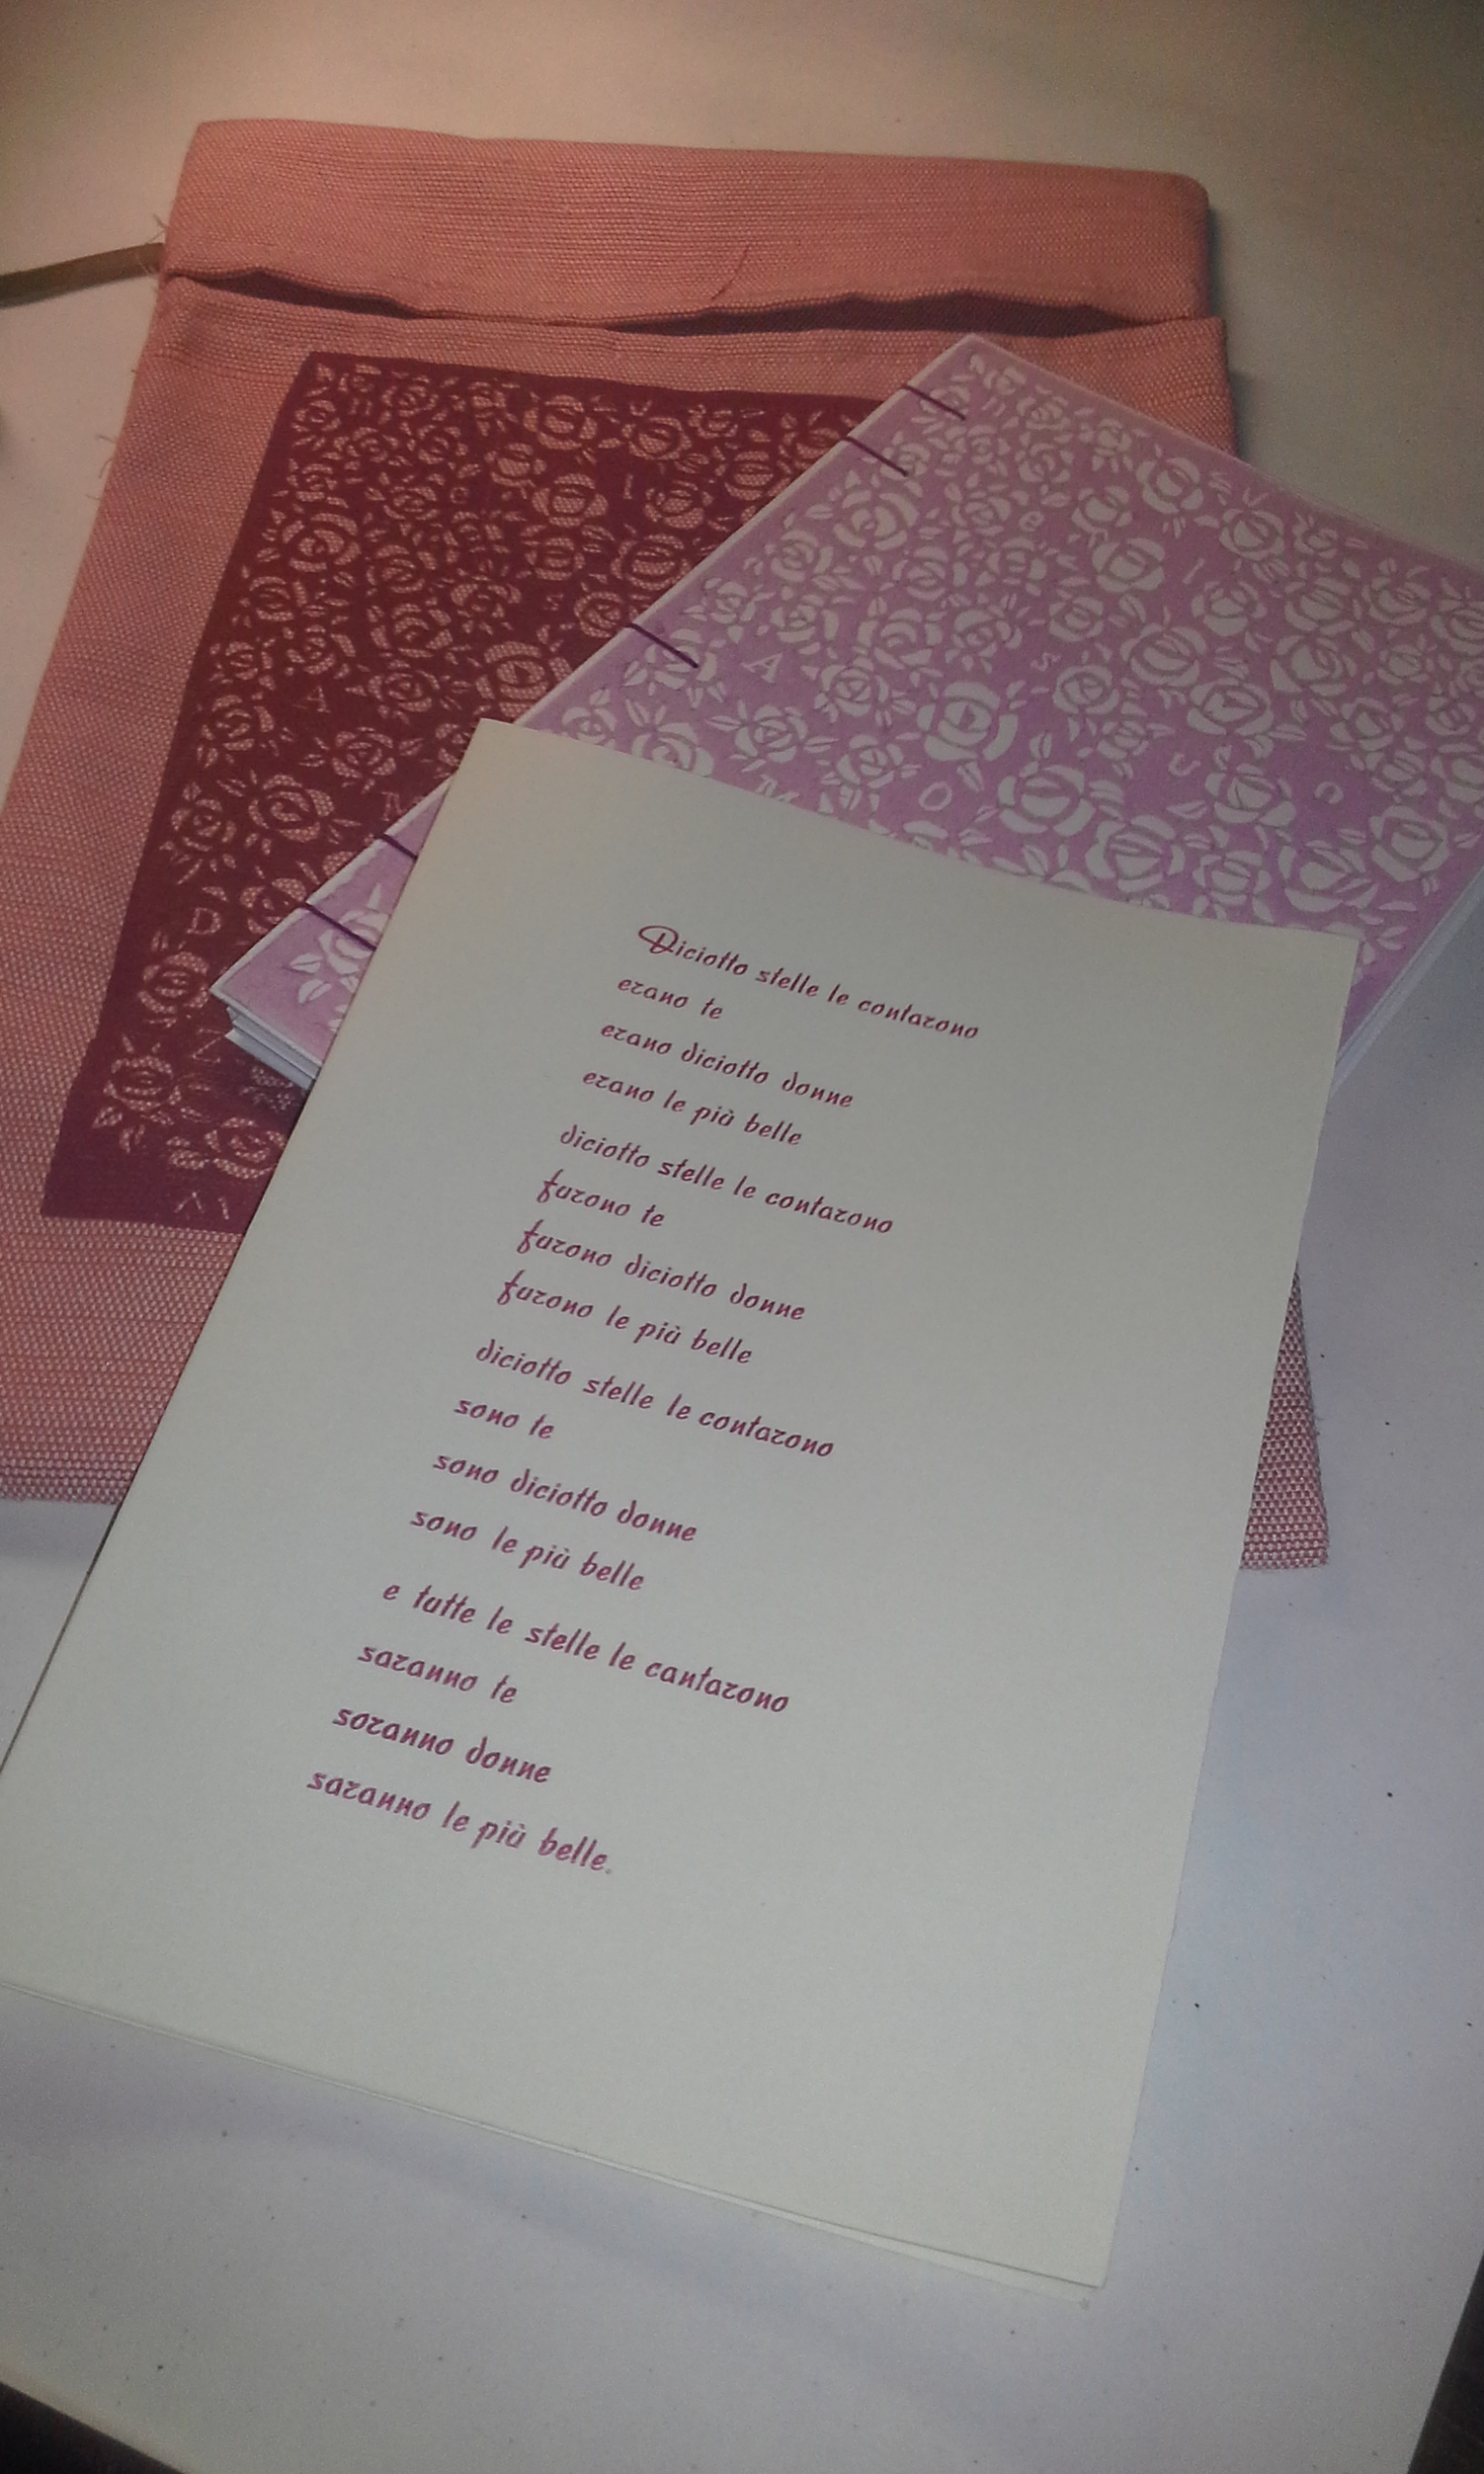 Diciotto stelle le contarono
erano te
erano diciotto donne
erano le più belle
diciotto stelle le contarono
furono te
furono diciotto donne
furono le più belle
diciotto stelle le contarono
sono te
sono diciotto donne
sono le più belle
e tutte le stelle le cantarono
saranno te
soranno donne
saranno le più belle.